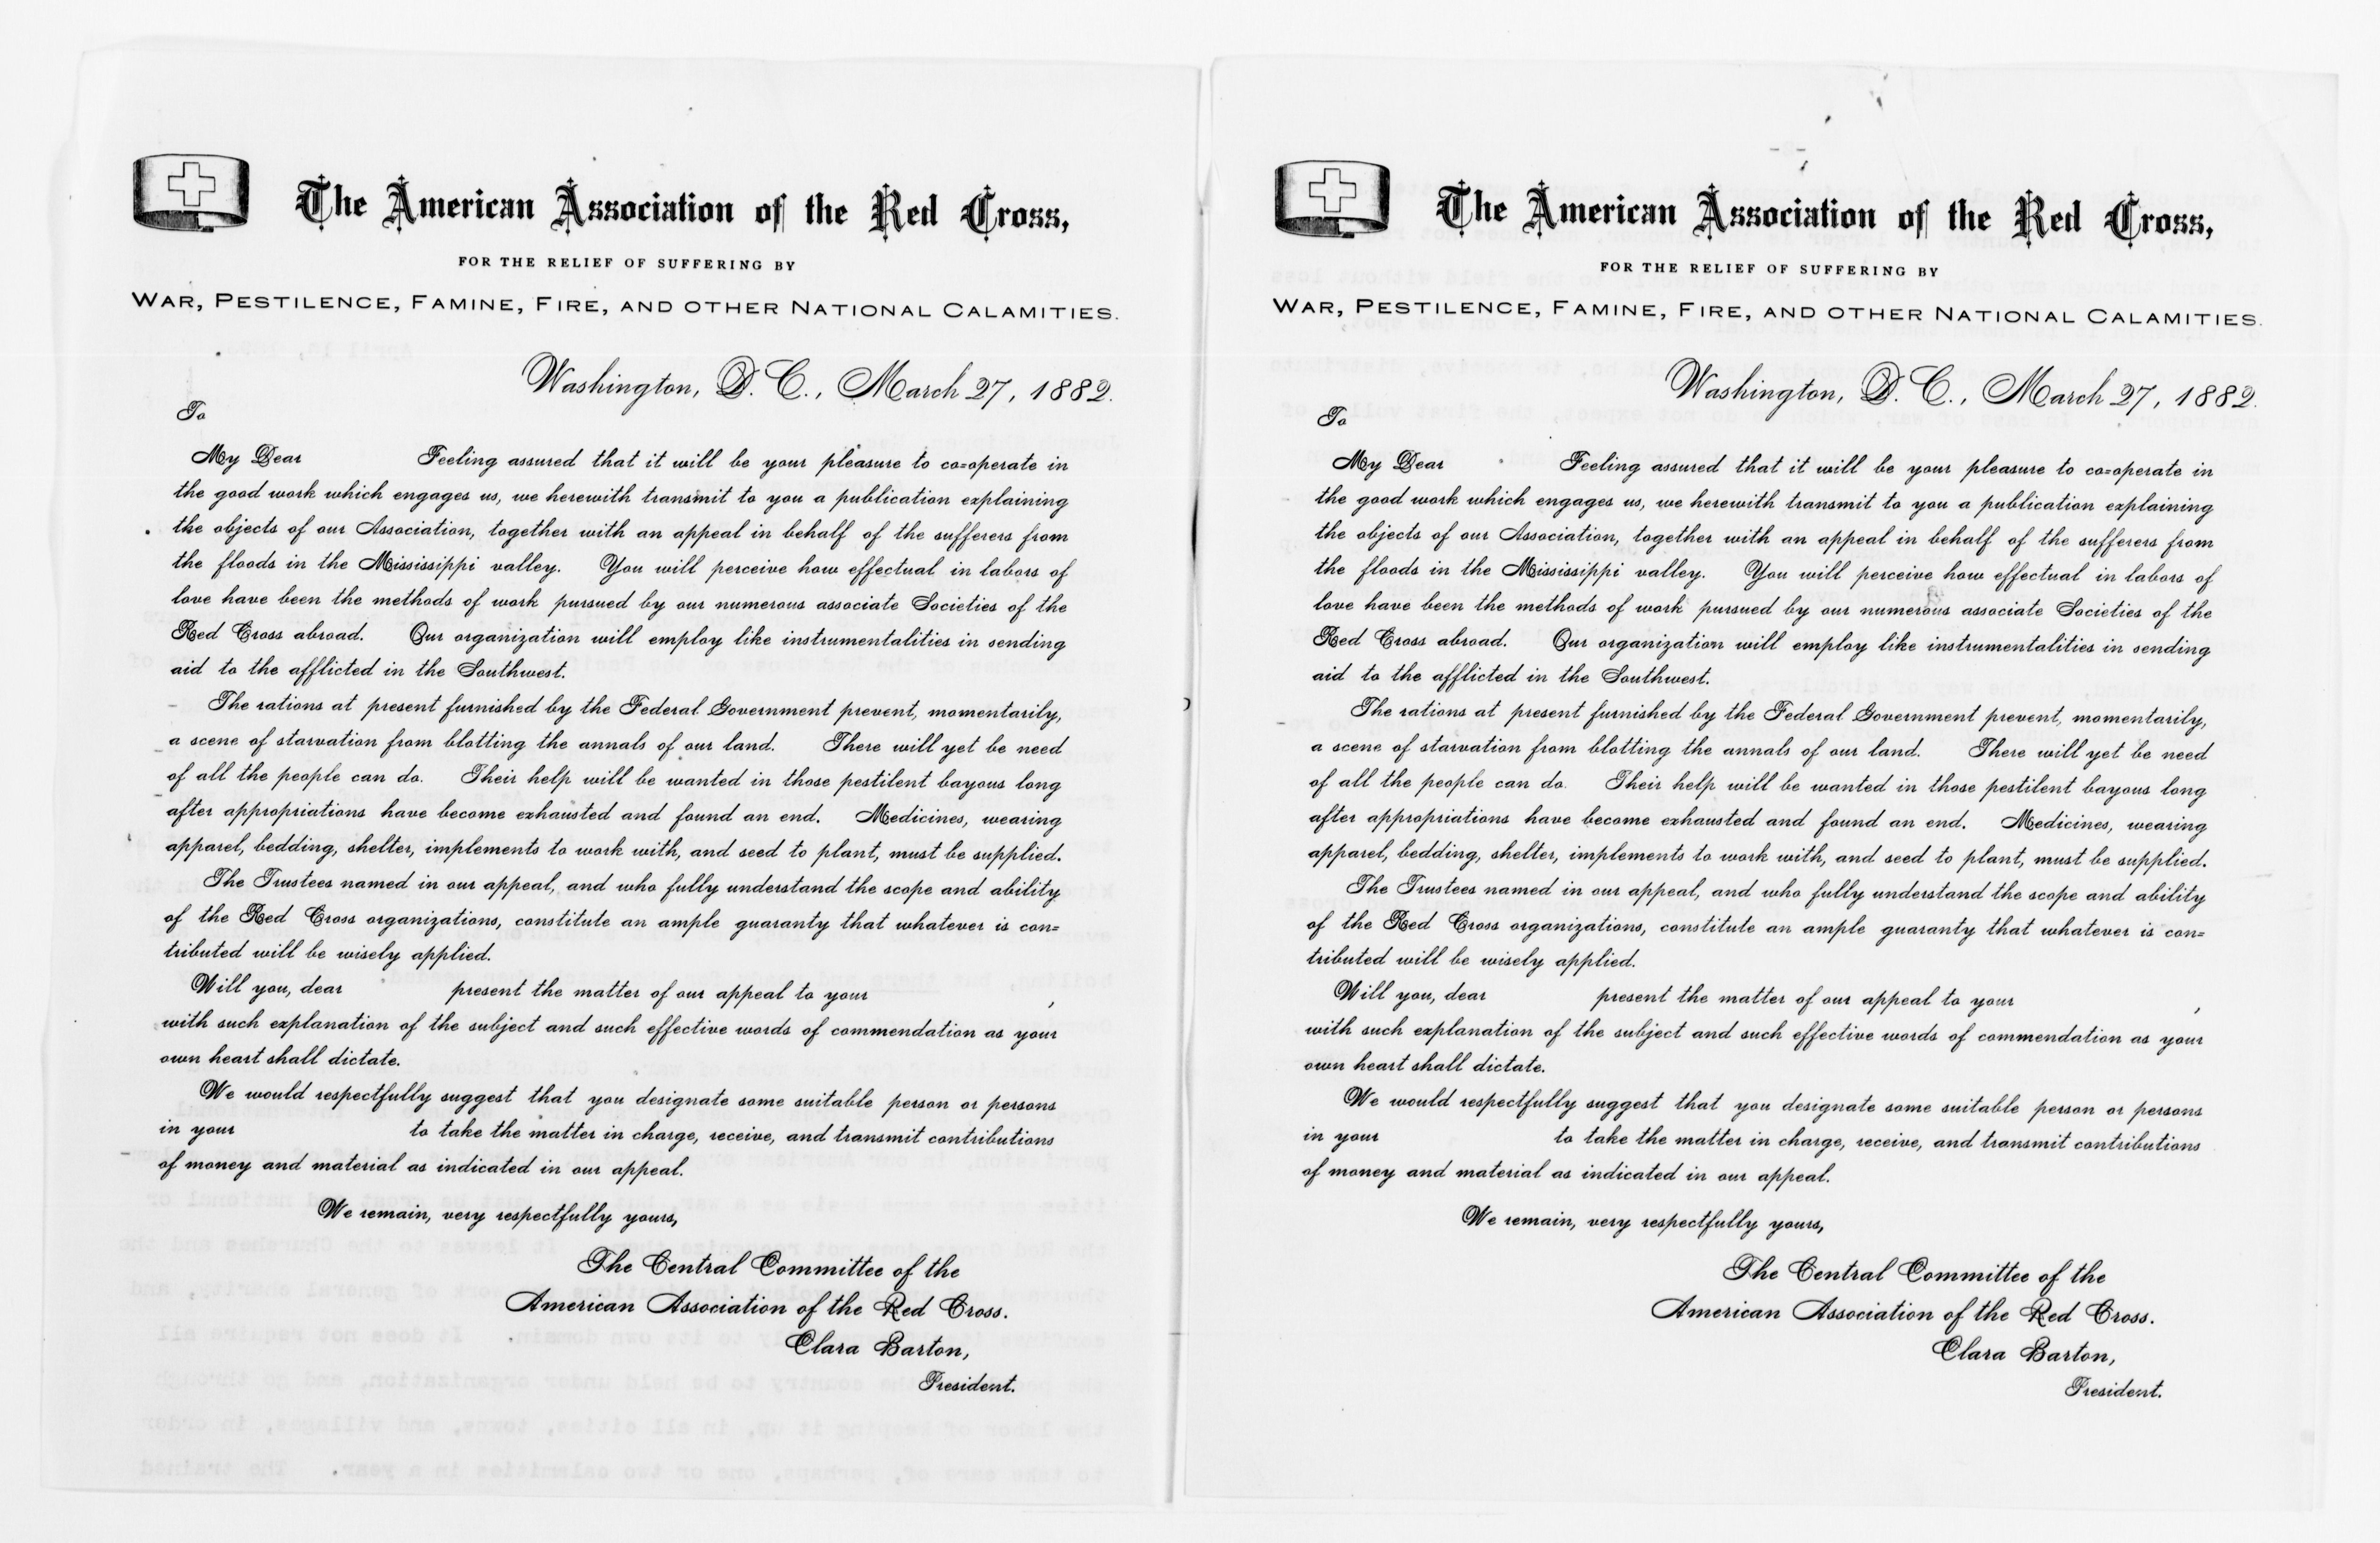 The American Association of the Red Cross,
FOR THE RELIEF OF SUFFERING BY
WAR, PESTILENCE, FAMINE, FIRE, AND OTHER NATIONAL CALAMITIES.
Washington, D. C., March 27, 1882.
To
My Dear Feeling assured that it will be your pleasure to co=operate in
the good work which engages us, we herewith transmit to you a publication explaining
the objects of our Association, together with an appeal in behalf of the sufferers from
the floods in the Mississippi valley. You will perceive how effectual in labors of
love have been the methods of work pursued by our numerous associate Societies of the
Red Cross abroad. Our organization will employ like instrumentalities in sending
aid to the afflicted in the Southwest.
The rations at present furnished by the Federal Government prevent, momentarily,
a scene of starvation from blotting the annals of our land. There will yet be need
of all the people can do. Their help will be wanted in those pestilent bayous long
after appropriations have become exhausted and found an end. Medicines, wearing
apparel, bedding, shelter, implements to work with, and seed to plant, must be supplied.
The Trustees named in our appeal, and who fully understand the scope and ability
of the Red Cross organizations, constitute an ample guaranty that whatever is con=
tributed will be wisely applied.
Will you, dear present the matter of our appeal to your ,
with such explanation of the subject and such effective words of commendation as your
own heart shall dictate.
We would respectfully suggest that you designate some suitable person or persons
in your to take the matter in charge, receive, and transmit contributions
of money and material as indicated in our appeal.
We remain, very respectfully yours,
The Central Committee of the
American Association of the Red Cross.
Clara Barton,
President.
The American Association of the Red Cross,
FOR THE RELIEF OF SUFFERING BY
WAR, PESTILENCE, FAMINE, FIRE, AND OTHER NATIONAL CALAMITIES.
Washington, D. C., March 27, 1882.
To
My Dear Feeling assured that it will be your pleasure to co=operate in
the good work which engages us, we herewith transmit to you a publication explaining
the objects of our Association, together with an appeal in behalf of the sufferers from
the floods in the Mississippi valley. You will perceive how effectual in labors of
love have been the methods of work pursued by our numerous associate Societies of the
Red Cross abroad. Our organization will employ like instrumentalities in sending
aid to the afflicted in the Southwest.
The rations at present furnished by the Federal Government prevent, momentarily,
a scene of starvation from blotting the annals of our land. There will yet be need
of all the people can do. Their help will be wanted in those pestilent bayous long
after appropriations have become exhausted and found an end. Medicines, wearing
apparel, bedding, shelter, implements to work with, and seed to plant, must be supplied.
The Trustees named in our appeal, and who fully understand the scope and ability
of the Red Cross organizations, constitute an ample guaranty that whatever is con=
tributed will be wisely applied.
Will you, dear present the matter of our appeal to your ,
with such explanation of the subject and such effective words of commendation as your
own heart shall dictate.
We would respectfully suggest that you designate some suitable person or persons
in your to take the matter in charge, receive, and transmit contributions
of money and material as indicated in our appeal.
We remain, very respectfully yours,
The Central Committee of the
American Association of the Red Cross.
Clara Barton,
President.